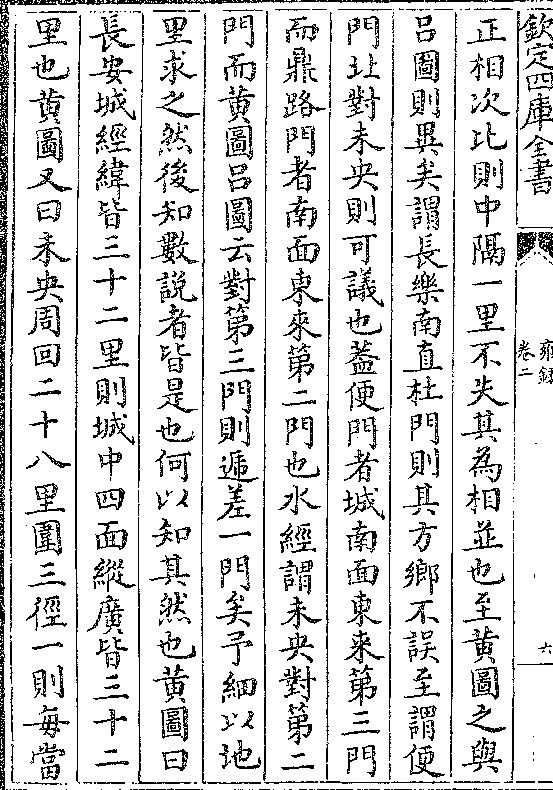 欽定四庫全書
雍録
卷二
六
正相次比則中隔一里不失其為相並也至黄圖之與
吕圖則異矣謂長樂南直杜門則其方鄉不誤至謂便
門北對未央則可議也葢便門者城南面東來第三門
而鼎路門者南面東來第二門也水經謂未央對第二
門而黄圖吕圖云對第三門則遞差一門矣予細以地
里求之然後知數説者皆是也何以知其然也黄圖曰
長安城經緯皆三十二里則城中四面縱廣皆三十二
里也黄圖又曰未央周回二十八里圍三徑一則毎當